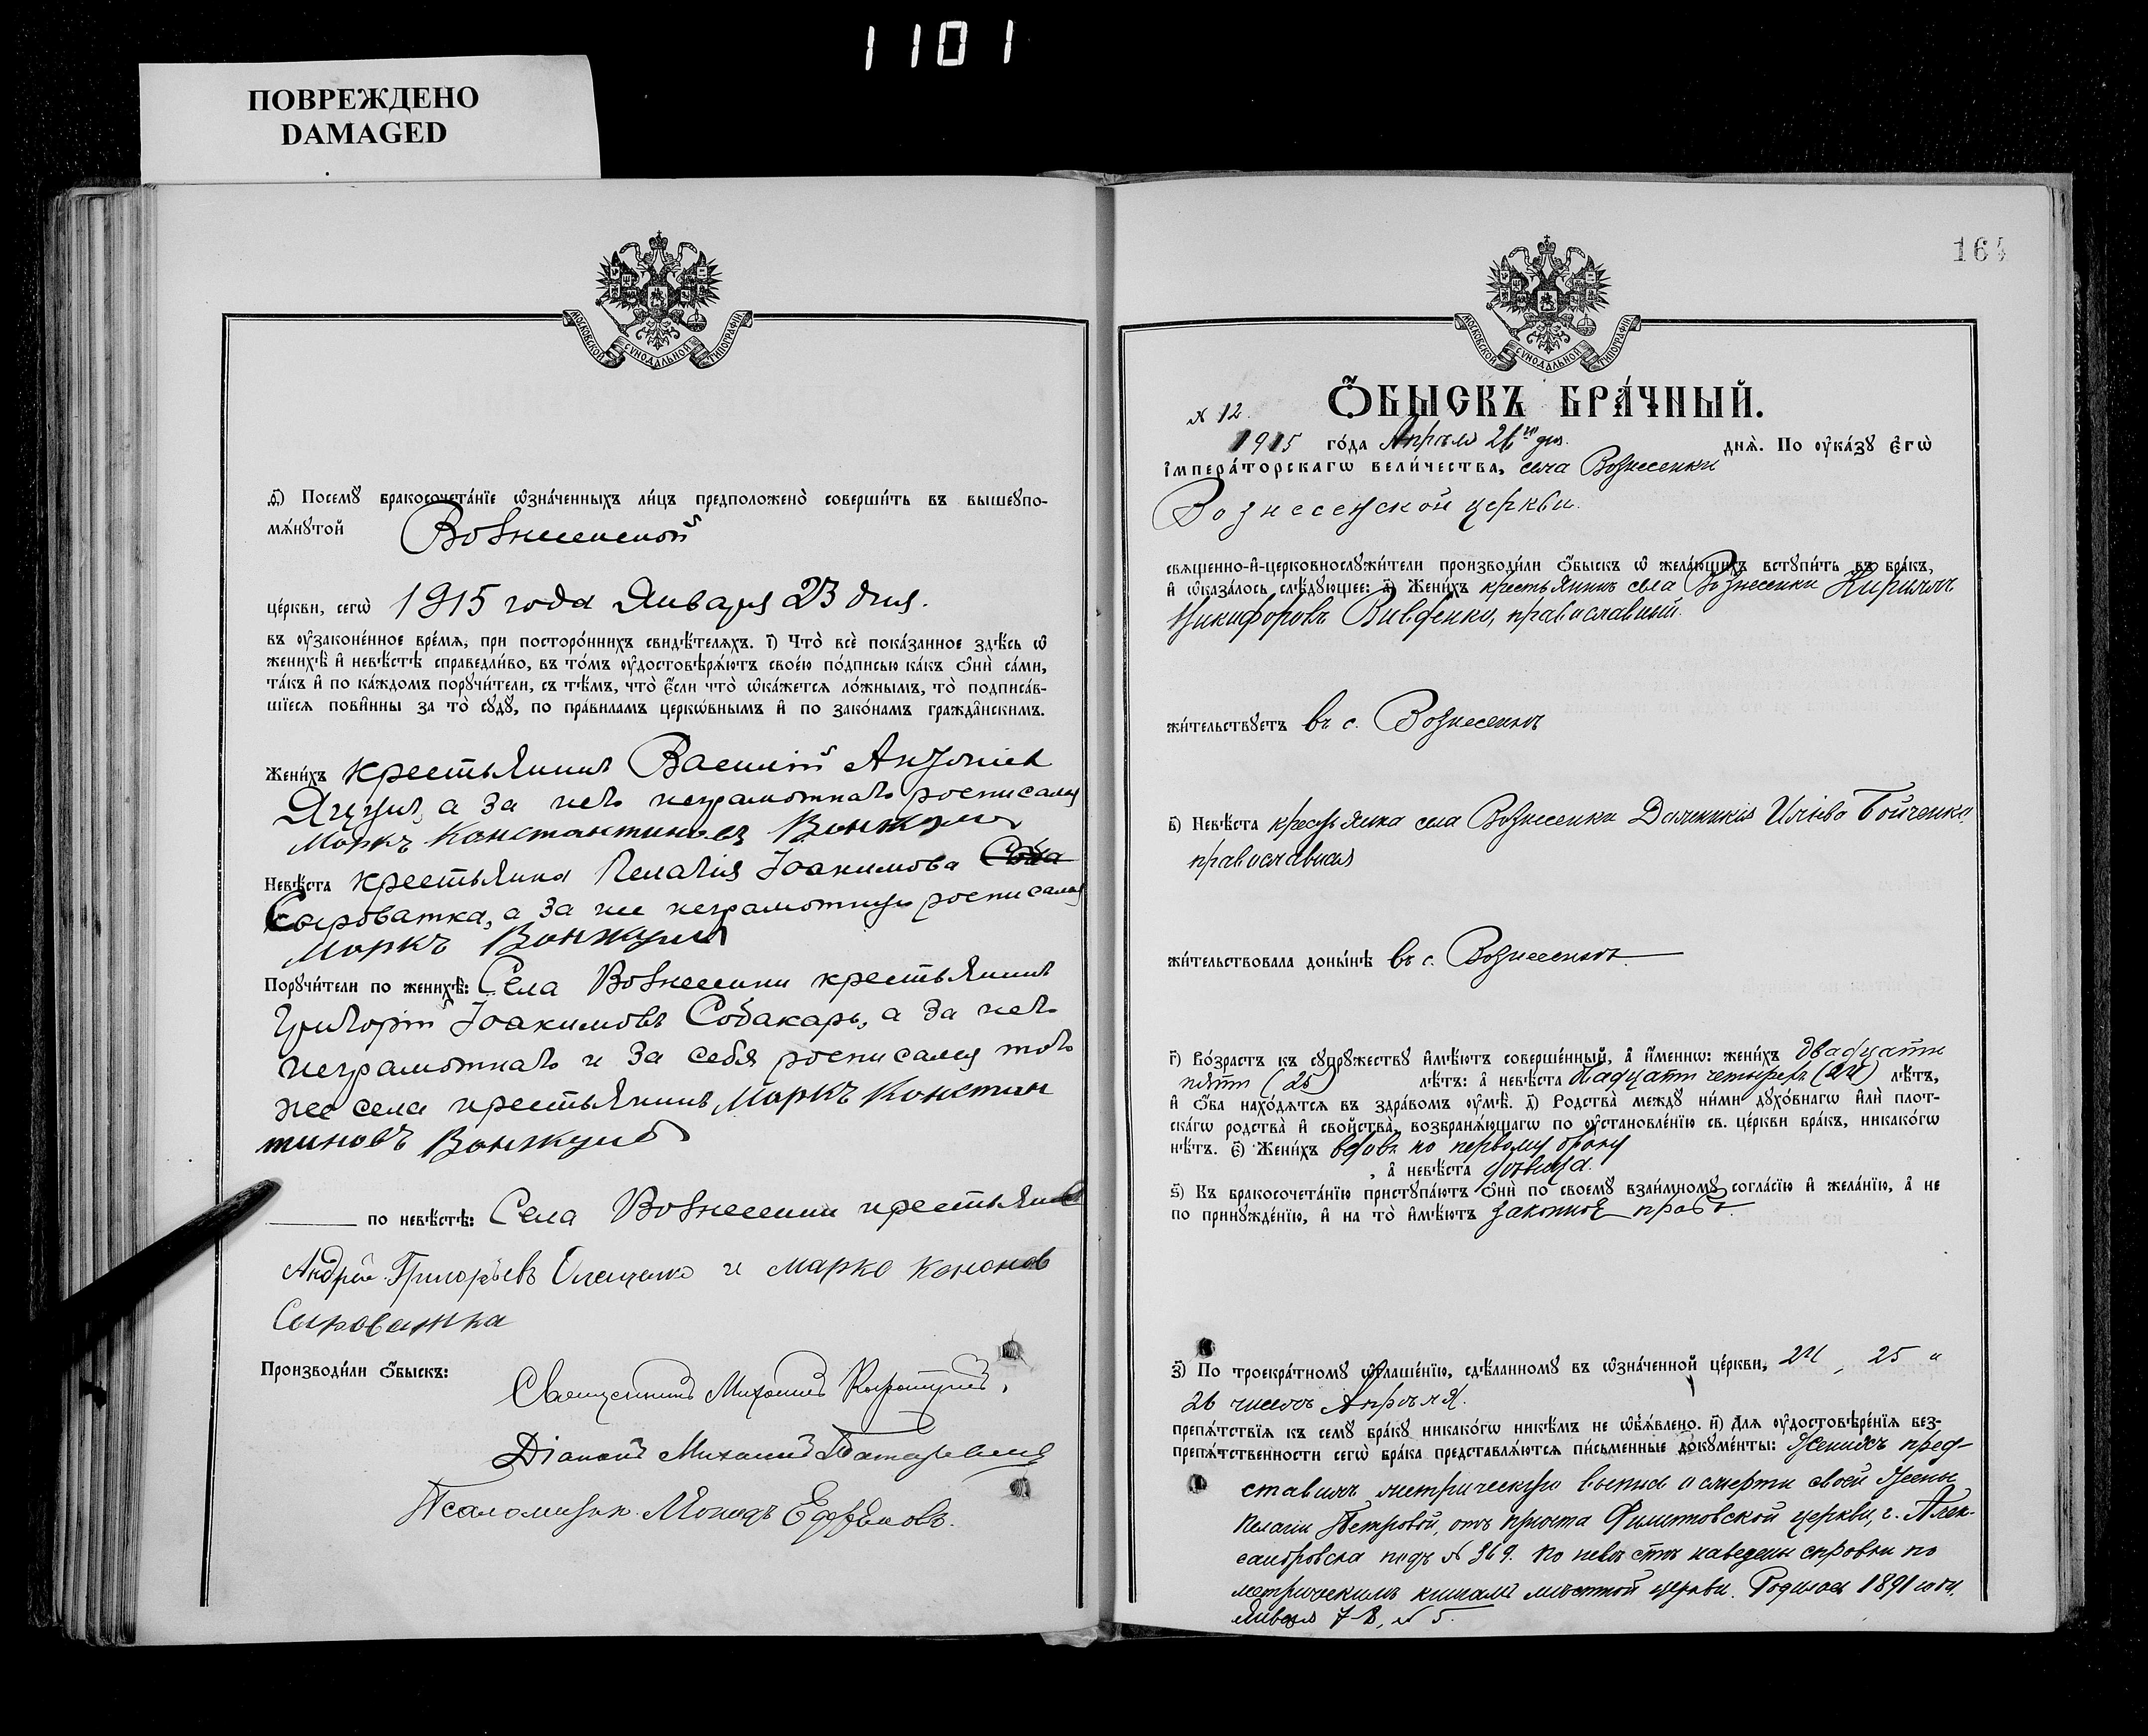 1101
ПОВРЕЖДЕНО
DAMAGED
МОСКОВСКОЙ СѴНОДАЛЬНОЙ ТИПОГРАФІИ
ѳ҃) Посемꙋ бракосочета́нїе ѡ҆зна́ченныхъ ли́цъ предположено̀ соверши́ть въ вышеꙋпо-
мѧ́нꙋтой Вознесенской
це́ркви, сегѡ̀ 1915 года Января 23 дня.
въ ᲂу҆зако́ненное вре́мѧ, при посторо́ннихъ свидѣ́телѧхъ. і҃) Что̀ всѐ пока́занное здѣ́сь ѡ҆
женихѣ̀ и҆ невѣ́стѣ справедли́во, въ то́мъ ᲂу҆достовѣрѧ́ютъ свое́ю по́дписью ка́къ ѻ҆нѝ са́ми,
та́къ и҆ по ка́ждомъ порꙋчи́тели, съ тѣ́мъ, что̀ є҆́сли что̀ ѡ҆ка́жетсѧ ло́жнымъ, то̀ подписа́в-
шїесѧ пови́нны за то̀ сꙋдꙋ̀, по пра́виламъ церкѡ́внымъ и҆ по зако́намъ гражда́нскимъ.
Жени́хъ крестьянинъ Василій Антоніев
а за него неграмотнаго росписался
Маркъ Константиновъ Вонжула
Невѣ́ста крестьянка Пелагія Іоакимова
Сыроватка, а за нее неграмотную росписался
Маркъ Вонжула
Порꙋчи́тели по женихѣ̀: Села Вознесенки крестьянинъ
Григорій Іоакимовъ Собакарь, а за него
неграмотнаго и за себя росписался того
же села крестьянинъ Маркъ Констан
тиновъ Вонжула
по невѣ́стѣ: Села Вознесенки крестьяне
Андрей Григорьевъ и Марко Кононов
Сыроватка
Производи́ли ѻ҆́быскъ:
Священникъ Михаилъ
Діаконъ Михаилъ
Псаломщик
164
МОСКОВСКОЙ СѴНОДАЛЬНОЙ ТИПОГРАФІИ
№ 12. Ѻ҆́БЫСКЪ БРА́ЧНЫЙ.
1915 го́да Апрѣля 26го дня. днѧ̀. По ᲂу҆ка́зꙋ є҆гѡ̀
і҆мпера́торскагѡ вели́чества, села Вознесенки
Вознесенской церкви.
свѧщенно-и҆-церковнослꙋжи́тели производи́ли ѻ҆́быскъ ѡ҆ жела́ющихъ встꙋпи́ть въ бра́къ,
и҆ ѡ҆каза́лось слѣ́дꙋющее: а҃) Жени́хъ крестьянинъ села Вознесенки Кириллъ
Никифоровъ Вивденко, православный.
жи́тельствꙋетъ въ с. Вознесенкѣ
в҃) Невѣ́ста крестьянка села Вознесенки Домникія Иліева Бойченко,
православная
жи́тельствовала доны́нѣ въ с. Вознесенкѣ.
г҃) Во́зрастъ къ сꙋпрꙋ́жествꙋ и҆мѣ́ютъ соверше́нный, а҆ и҆́меннѡ: жени́хъ двадцати
пяти (25) лѣ́тъ: а҆ невѣ́ста двадцати четырехъ (24) лѣ́тъ,
и҆ ѻ҆́ба нахо́дѧтсѧ въ здра́вомъ ᲂу҆мѣ̀. д҃) Родства̀ междꙋ̀ ни́ми дꙋхо́внагѡ и҆лѝ плот-
ска́гѡ родства̀ и҆ сво́йства, возбранѧ́ющагѡ по ᲂу҆становле́нїю св. це́ркви бра́къ, никако́гѡ
нѣ́тъ. є҃) Жени́хъ вдовъ по первому браку
, а҆ невѣ́ста дѣвица.
ѕ҃) Къ бракосочета́нїю пристꙋпа́ютъ ѻ҆нѝ по своемꙋ̀ взаи́мномꙋ согла́сїю и҆ жела́нїю, а҆ не
по принꙋжде́нїю, и҆ на то̀ и҆мѣ́ютъ законное право.
з҃) По троекра́тномꙋ ѡ҆глаше́нїю, сдѣ́ланномꙋ въ ѡ҆зна́ченной це́ркви, 24, 25 и
26 чиселъ Апрѣля.
препѧ́тствїѧ къ семꙋ̀ бра́кꙋ никако́гѡ никѣ́мъ не ѡ҆бъѧ́влено. и҃) Длѧ ᲂу҆достовѣре́нїѧ без-
препѧ́тственности сегѡ̀ бра́ка представлѧ́ютсѧ пи́сьменные докꙋме́нты: Женихъ пред-
ставилъ метрическую выпись о смерти своей жены
Пелагіи Петровой, отъ причта Филипповской церкви, г. Алек-
сандровска подъ № 369. По невѣстѣ наведены справки по
метрическимъ книгамъ мѣстной церкви. Родилась 1891 года,
Января 7-8, № 5.